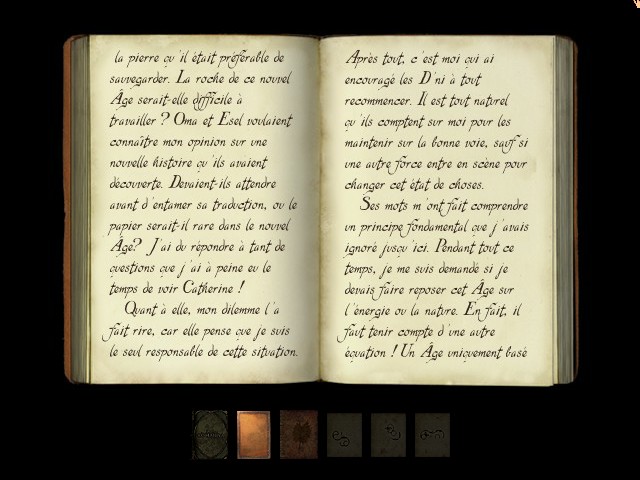 la pierre qu'il était préférable de
sauvegarder. La roche de ce nouvel
Âge serait-elle difficile à
travailler ? Oma et Esel voulaient
connaître mon opinion sur une
nouvelle histoire qu'ils avaient
découverte. Devaient-ils attendre
avant d'entamer sa traduction, ou le
papier serait-il rare dans le nouvel
Âge? J'ai du répondre à tant de
questions que j'ai à peine eu le
temps de voir Catherine !
Quant à elle, mon dilemme l'a
fait rire, car elle pense que je suis
le seul responsable de cette situation.
Après tout, c'est moi qui ai
encouragé les D'ni à tout
recommencer. Il est tout naturel
qu'ils comptent sur moi pour les
maintenir sur la bonne voie, sauf si
une autre force entre en scène pour
changer cet état de choses.
Ses mots m'ont fait comprendre
un principe fondamental que j'avais
ignoré jusqu'ici. Pendant tout ce
temps, je me suis demandé si je
devais faire reposer cet Âge sur
l'énergie ou la nature. En fait, il
faut tenir compte d'une autre
équation ! Un Âge uniquement basé